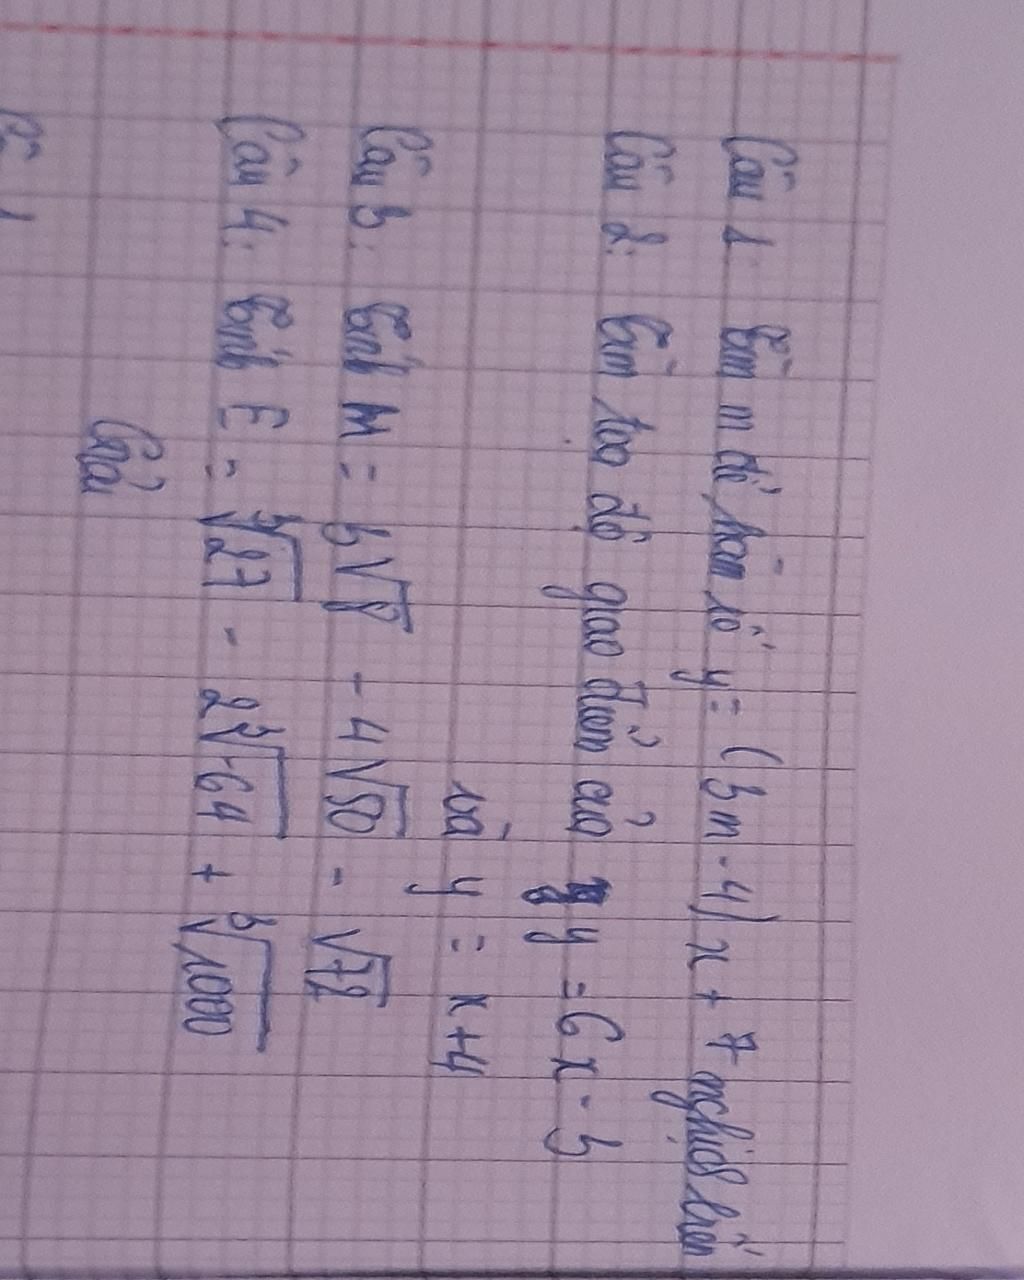 Câu 1: Tìm m để hàm số y = (3m - 4)x + 7 nghịch biến
Câu 2: Tìm toạ độ giao điểm của y = 6x - 3
và y = x + 4
Câu 3: Tính M = 5√8 - 4√50 - √72
Câu 4: Tính E = ∛27 - 2∛-64 + ∛1000
Giải